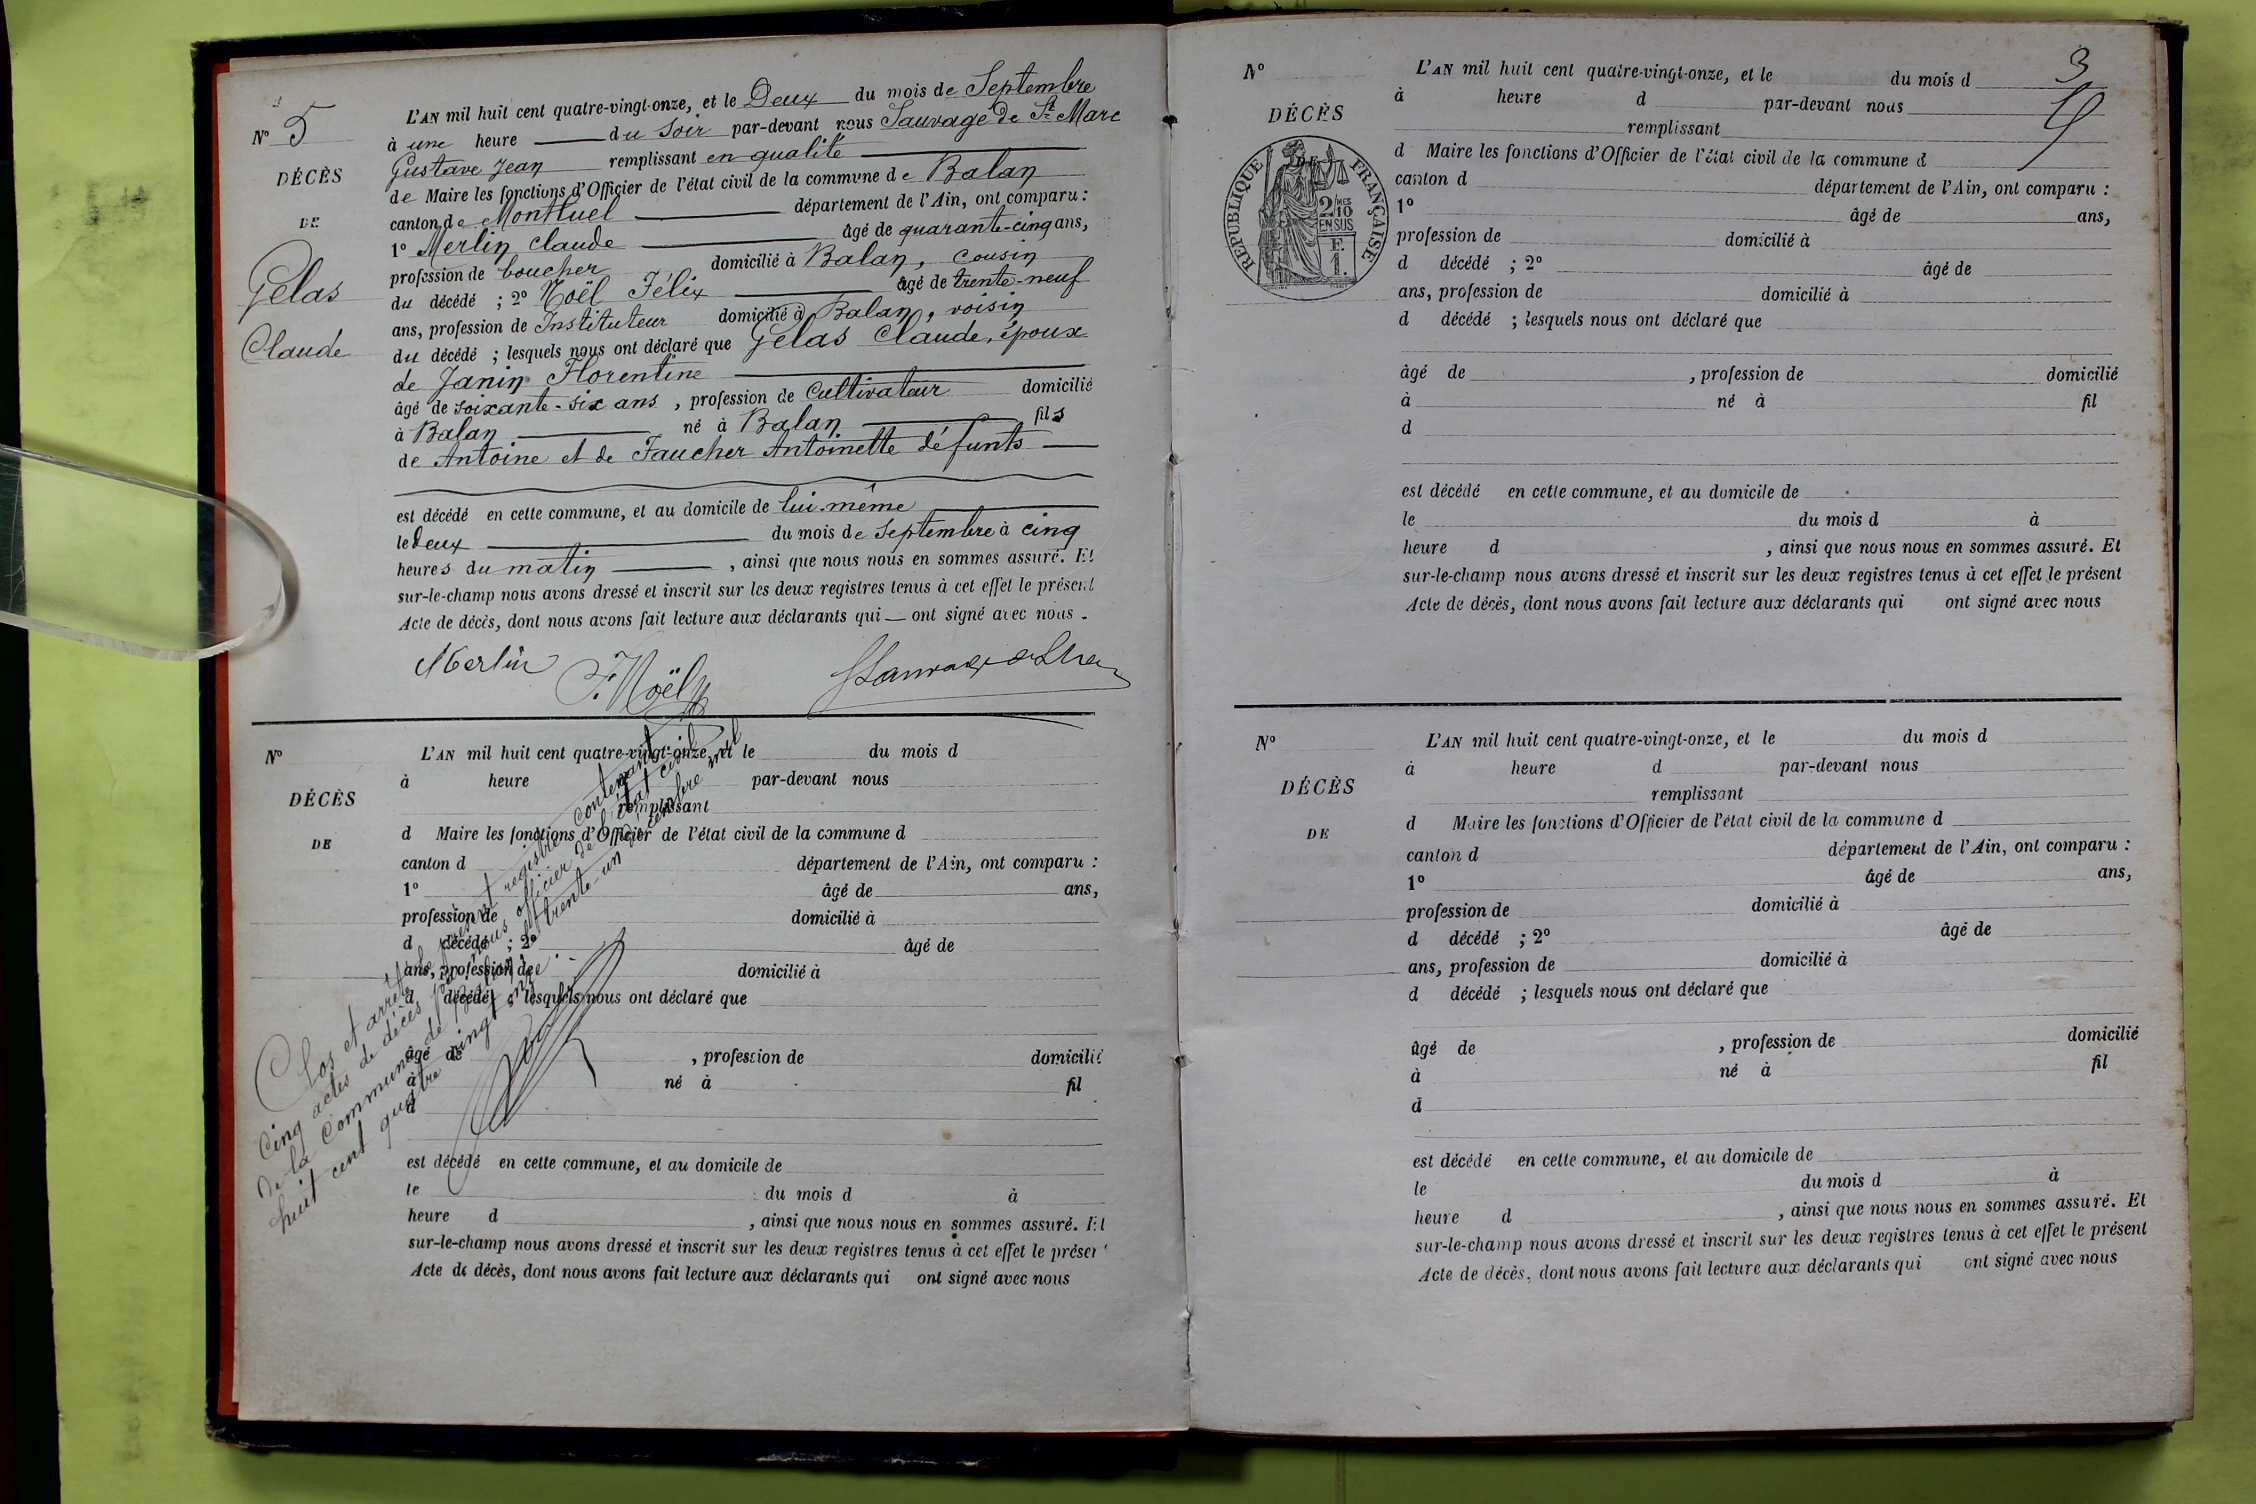 N° 5
DÉCÈS
DE
Gelas
Claude
L'AN mil huit cent quatre-vingt-onze, et le Deux du mois de Septembre
à une heure du soir par-devant nous Sauvage De St Marc
Gustave Jean remplissant en qualité
de Maire les fonctions d'Officier de l'état civil de la commune de Balan
canton de Montluel département de l'Ain, ont comparu :
1° Merlin Claude âgé de quarante-cinq ans,
profession de boucher domicilié à Balan, cousin
du décédé ; 2° Noël Félix âgé de trente-neuf
ans, profession de Instituteur domicilié à Balan, voisin
du décédé ; lesquels nous ont déclaré que Gelas Claude, époux
de Janin Florentine
âgé de soixante-six ans, profession de Cultivateur domicilié
à Balan né à Balan fils
de Antoine et de Faucher Antoinette défunts
est décédé en cette commune, et au domicile de lui-même
le deux du mois de Septembre à cinq
heures du matin, ainsi que nous nous en sommes assuré. Et
sur-le-champ nous avons dressé et inscrit sur les deux registres tenus à cet effet le présent
Acte de décès, dont nous avons fait lecture aux déclarants qui — ont signé avec nous.
Merlin F. Noël
N°
DÉCÈS
DE
L'AN mil huit cent quatre-vingt-onze, et le du mois d
à heure par-devant nous
remplissant
d Maire les fonctions d'Officier de l'état civil de la commune d
canton d département de l'Ain, ont comparu :
1° âgé de ans,
profession de domicilié à
d décédé ; 2° âgé de
ans, profession de domicilié à
d décédé ; lesquels nous ont déclaré que
âgé de , profession de domicilié
à né à fil
d
est décédé en cette commune, et au domicile de
le du mois d à
heure d , ainsi que nous nous en sommes assuré. Et
sur-le-champ nous avons dressé et inscrit sur les deux registres tenus à cet effet le présent
Acte de décès, dont nous avons fait lecture aux déclarants qui ont signé avec nous
Clos et arrêté le présent registre contenant
Cinq actes de décès par nous officier de l'état civil
de la commune de Balan, et trente-un décembre mil
huit cent quatre vingt onze.
3
N°
DÉCÈS
DE
RÉPUBLIQUE FRANÇAISE
2/MES
10
EN SUS
F.
1.
L'AN mil huit cent quatre-vingt-onze, et le du mois d
à heure d par-devant nous
remplissant
d Maire les fonctions d'Officier de l'état civil de la commune d
canton d département de l'Ain, ont comparu :
1° âgé de ans,
profession de domicilié à
d décédé ; 2° âgé de
ans, profession de domicilié à
d décédé ; lesquels nous ont déclaré que
âgé de , profession de domicilié
à né à fil
d
est décédé en cette commune, et au domicile de
le du mois d à
heure d , ainsi que nous nous en sommes assuré. Et
sur-le-champ nous avons dressé et inscrit sur les deux registres tenus à cet effet le présent
Acte de décès, dont nous avons fait lecture aux déclarants qui ont signé avec nous
N°
DÉCÈS
DE
L'AN mil huit cent quatre-vingt-onze, et le du mois d
à heure d par-devant nous
remplissant
d Maire les fonctions d'Officier de l'état civil de la commune d
canton d département de l'Ain, ont comparu :
1° âgé de ans,
profession de domicilié à
d décédé ; 2° âgé de
ans, profession de domicilié à
d décédé ; lesquels nous ont déclaré que
âgé de , profession de domicilié
à né à fil
d
est décédé en cette commune, et au domicile de
le du mois d à
heure d , ainsi que nous nous en sommes assuré. Et
sur-le-champ nous avons dressé et inscrit sur les deux registres tenus à cet effet le présent
Acte de décès, dont nous avons fait lecture aux déclarants qui ont signé avec nous